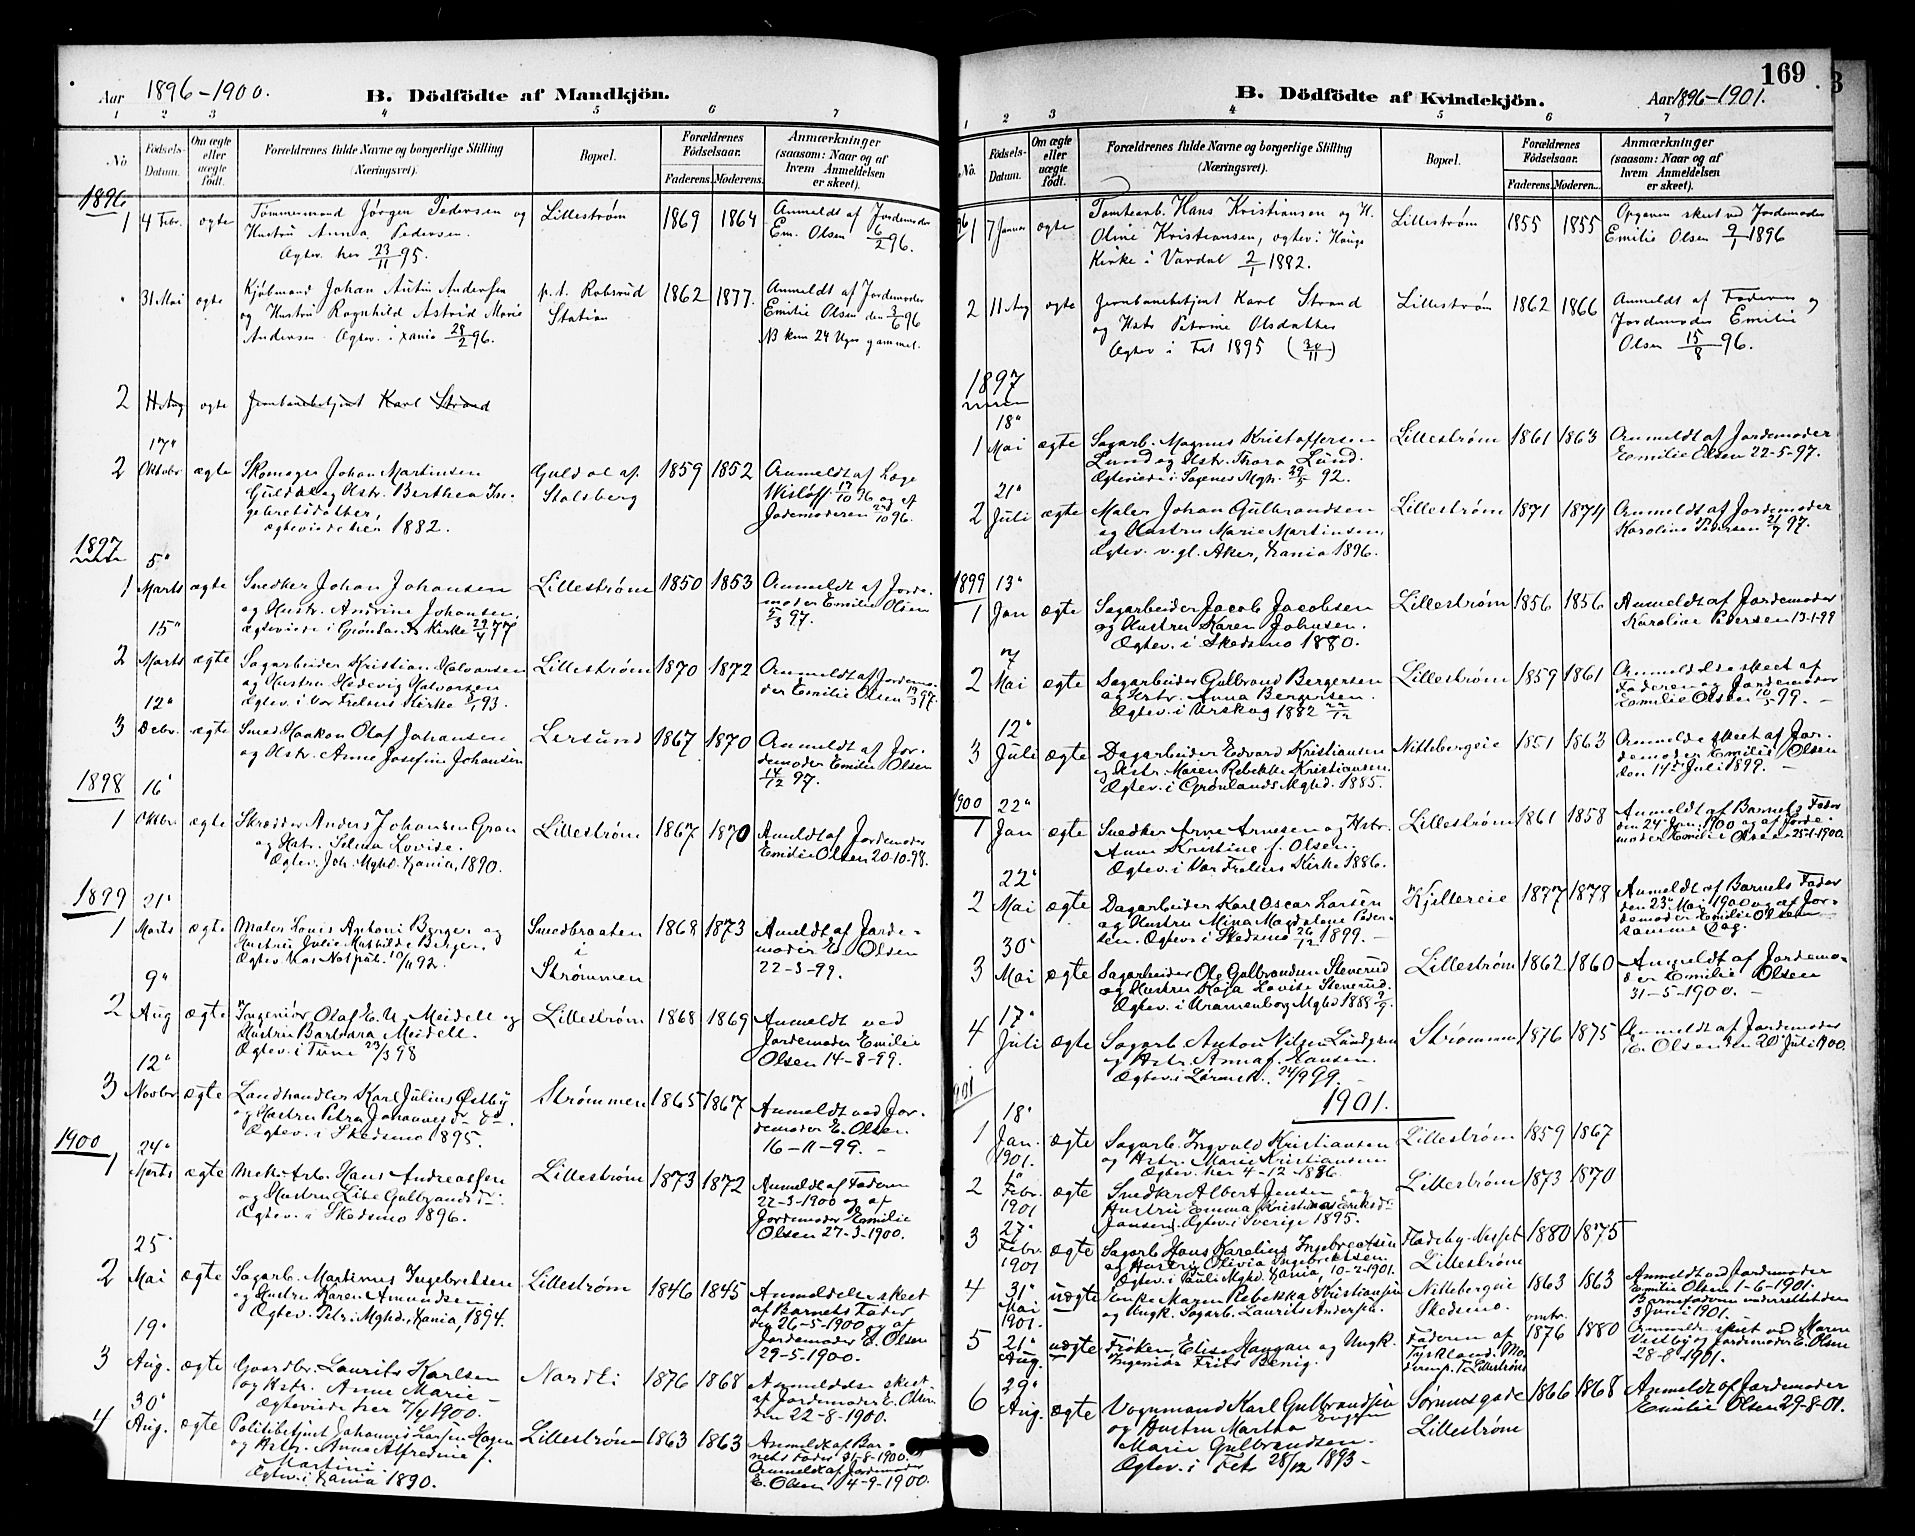 Aar 1896-1900.
B. Dödfödte af Mandkjön.
1 2 3 4 5 6 7
No
Födsels-
Datum.
Om ægte
eller
uægte
födt.
Forældrenes fulde Navne og borgerlige Stilling
(Næringsvei).
Bopæl.
Forældrenes
Födselsaar.
Faderens. Moderens.
Anmærkninger
(saasom: Naar og af
hvem Anmeldelsen
er skeet).
1896
1 4 Febr. ogte Tømmermand Jørgen Pedersen og Lillestrøm 1869 1864 Anmeldt af Jordemoder
Hustru Anna Pedersen. Em. Olsen 6/2 96.
Ogtev. her 23/11 95.
" 31 Mai ogte Kjøbmand Johan Autin Andersen p.t. Robsrud 1862 1877. Anmeldt af Jordemoder
og Hustru Ragnhild Astrid Marie Station Emilie Olsen den 3/6 96
Andersen. Ogtev. i Xania 28/2 96. NB kun 24 Uger gammel.
2 11 Aug ogte Jernbanebetjent Karl Strand
17"
2 Oktobr ægte Skomager Johan Martinsen Guldal af 1859 1852 Anmeldt af Læge
Guldal og Hstr. Berthea In- Stalsberg Wisløff 17/10 96 og af
gebretsdatter, Jordemoderen 10 96.
ægteviede her 1882.
1897 5"
1 Marts ægte Snedker Johan Johansen Lillestrøm 1850 1853 Anmeldt af Jorde-
og Hustr. Andrine Johansen, moder Emilie Olsen
ægteviede i Grønlands Kirke 29/4 77 5/3 97.
15"
2 Marts ægte Sagarbeider Kristian Halvorsen Lillestrøm 1870 1872 Anmeldt af Jordemo-
og Hustru Hedevig Halvorsen der Emilie Olsen 17/3 97.
Ægtev. i Vor Frelsers Kirke 93.
12"
3 Decbr. ægte Smed Haakon Olaf Johansen Lersund 1867 1870 Anmeldt af Jor-
og Hstr. Anne Josefine Johansen demoder Emilie Olsen
14/12 97.
1898 16'
1 Oktbr. ægte Skrædder Anders Johansen Gran Lillestrøm 1867 1870 Anmeldt af Jordemoder
og Hstr. Selma Lovise. Emilie Olsen 20-10-98.
Ægtev. Joh. Mghd. Xania, 1890.
1899 21"
1 Marts ægte Maler Louis Anthoni Berger og Smedbraaten 1868 1873 Anmeldt af Jorde-
Hustru Julie Mathilde Berger. i moder E. Olsen
Ægtev. hos Not. pub. 10/11 92. Strømmen 22-3-99.
9"
2 Aug ægte Ingeniør Olaf E. N. Meidell og Lillestrøm 1868 1869 Anmeldt ved
Hustru Barbara Meidell. Jordemoder Emilie
Ægtev. i Tune 23/3 98 Olsen 14-8-99.
12"
3 Novbr ægte Landhandler Karl Julius Østby Strømmen 1865 1867 Anmeldt ved Jor-
og Hustru Petra Johannesdr do. demoder E. Olsen
Ægtev. i Skedsmo 1895. 16-11-99.
1900 24"
1 Marts ægte Mek. Arb. Hans Andreassen Lillestrøm 1873 1872 Anmeldt af Faderen
og Hustru Lise Gulbrandsdr. 22-3-1900 og af
Ægtev. i Skedsmo 1896. Jordemoder Emilie
Olsen 27-3-1900.
25'
2 Mai ægte Sagarb. Martinus Ingebretsen Lillestrøm 1846 1845 Anmeldelse skeet
og Hustru Karen Amundsen af Barnets Fader
Ægtev. Petri Mghd. Xania, 1894. den 26-5-1900 og af
Jordemoder E. Olsen
29-5-1900.
19'
3 Aug. ægte Gaardbr. Laurits Karlsen Nardli 1876 1868 Anmeldelse skeet
og Hstr. Anne Marie - af Jordemoder E. Olsen
Ægteviede her 1900. den 22-8-1900.
30'
4 Aug. ægte Politibetjent Johannes Larsen Hagen Lillestrøm 1863 1863 Anmeldt af Bar-
og Hstr. Anna Alfredine f. nets Fader 31-8-1900.
Martini. Anmeldt af Jordemoder
Ægtev. i Xania 1890. E. Olsen 4-9-1900.
169
B. Dödfödte af Kvindekjön.
Aar 1896-1901.
1 2 3 4 5 6 7
No.
Födsels-
Datum.
Om ægte
eller
uægte
födt.
Forældrenes fulde Navne og borgerlige Stilling
(Næringsvei).
Bopæl.
Forældrenes
Födselsaar.
Faderens. Moderens.
Anmærkninger
(saasom: Naar og af
hvem Anmeldelsen
er skeet).
96 1 7 Januar ogte Tomtearb. Hans Kristiansen og H. Lillestrøm 1855 1855 Opgaven skeet ved Jordemoder
Oline Kristiansen, ogtev. i Hauge Emilie Olsen 9/1 1896
Kirke i Vardal 2/1 1882.
2 11 Aug ogte Jernbanebetjent Karl Strand Lillestrøm 1862 1866 Anmeldt af Faderen og
og Hstr Petrine Olsdatter Jordemoder Emilie
Ogtev i Fet 1895 (30/11) Olsen 15/8 96.
1897
18"
1 Mai ægte Sagarb. Magnus Kristoffersen Lillestrøm 1861 1863 Anmeldt af Jordemoder
Lund og Hstr. Thora Lund. Emilie Olsen 22-5-97.
Ægteviede i Sagenes Mgh. 29/5 92.
21"
2 Juli ægte Maler Johan Gulbrandsen Lillestrøm 1871 1874 Anmeldt af Jordemoder
og Hustru Marie Martinsen, Karoline Pedersen 21/7 97.
Ægtev. v. gl. Aker, Xania 1896.
1899 13"
1 Jan ægte Sagarbeider Jacob Jacobsen Lillestrøm 1856 1856 Anmeldt af Jordemoder
og Hustru Karen Johnsen. Karoline Pedersen 13-1-99
Ægtev. i Skedsmo 1880.
7
2 Mai ægte Dagarbeider Gulbrand Bergersen Lillestrøm 1859 1861 Anmeldelse skeet af
og Hstr. Anna Bergersen. Faderen og Jordemoder
Ægtev. i Urskog 1882 22/12 Emilie Olsen 10/5 99.
12"
3 Juli ægte Dagarbeider Edvard Kristiansen Nittebergeie 1851 1863 Anmeldelse skeet af Jor-
og Hstr. Maren Rebekke Kristiansen. demoder Emilie Olsen
Ægtev. i Grønlands Mghd. 1885. den 14de Juli 1899.
1900 22"
1 Jan ægte Snedker Arne Arnesen og Hstr. Lillestrøm 1861 1858 Anmeldt af Barnets Fader
Anne Kristine f. Olsen. den 24' Jan. 1900 og af Jorde-
Ægtev. i Vor Frelsers Kirke 1886. moder Emilie Olsen 25-1-1900.
22'
2 Mai ægte Dagarbeider Karl Oscar Larsen Kjellereie 1877 1878 Anmeldt af Barnets Fader
og Hustru Mina Magdalene Peder- den 23' Mai 1900 og af Jor-
sen. Ægtev. i Skedsmo 26/12 1899. demoder Emilie Olsen
samme Dag.
30'
3 Mai ægte Sagarbeider Ole Gulbrandsen Steverud Lillestrøm 1862 1860 Anmeldt af Jordemo-
og Hustru Kaja Lovise Steverud. der Emilie Olsen
Ægtev. i Uranienborg Mghd 1888 9/9. 31-5-1900.
17"
4 Juli ægte Sagarb. Anton Nilsen Lundgren Strømmen 1876 1875 Anmeldt af Jordemoder
og Hstr. Anna f. Hansen. E. Olsen den 20' Juli 1900.
Ægtev. i Lørensk. 24/9 99.
1901
1901.
18'
1 Jan. ægte Sagarb. Ingvald Kristiansen Lillestrøm 1859 1867
1901. og Hstr. Marie Kristiansen
Ægtev. her 4-12-1886.
1'
2 Febr. ægte Snedker Albert Jensen og Lillestrøm 1873 1870
1901 Hustru Emma Kristina Eriksdr
Jansen. Ægtev. i Sverige 1895.
27'
3 Febr. ægte Sagarb. Hans Karelius Ingebretsen Fladeby-Nesset 1880 1875
1901 og Hustru Olivia Ingebretsen Lillestrøm
Ægtev. i Pauli Mghd. Xania, 10-2-1901.
4 31' uægte Enke Maren Rebekka Kristiansen Nittebergeie 1863 1863 Anmeldt ved Jordemoder
Mai og Ungk. Sagarb. Laurits Andersen. Skedsmo. Emilie Olsen 1-6-1901.
1901. Barnefaderen underrettet den
3 Juni 1901.
5 21' uægte Frøken Elise Haugan og Ungk. Faderen af omtr. 1876 1880 Anmeldelse skeet ved Maren
Aug. Ingeniør Frits Benig. Tyskland. Mo- Vestby og Jordemoder E. Olsen
deren p. T. Lillestrøm 28-8-1901.
29'
6 Aug. ægte Vognmand Karl Gulbrandsen Sørumsgade 1866 1868 Anmeldt af Jordemoder
og Hustru Martha Lillestrøm Emilie Olsen 29-8-01.
Marie Gulbrandsen.
Ægtev. i Fet 28/12 1893-